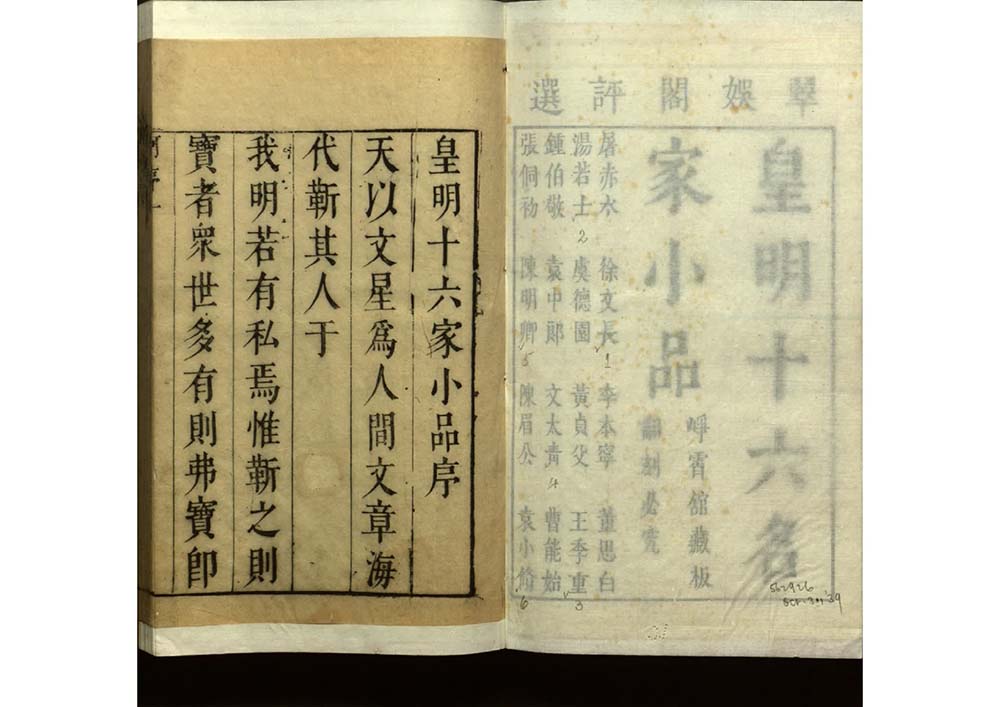 翠娛閣評選
皇明十六名
家小品
崢霄館藏板
翻刻必究
屠赤水 徐文長 李本寧 董思白
1
湯若士 虞德園 黃貞父 王季重
2
3
鍾伯敬 袁中郎 文太青 曹能始
4
張侗初 陳明卿 陳眉公 袁小脩
5
6
562926
皇明十六家小品序
天以文星爲人間文章海
代靳其人于
我明若有私焉惟靳之則
寶者衆世多有則弗寶卽